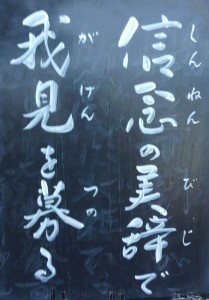 信念の美辞で
しんねん びじ
我見を募る
がけん つの